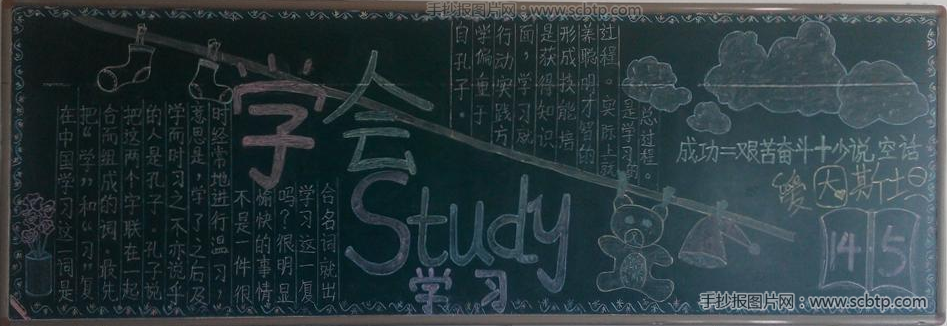 手抄报图片网：www.scbtp.com
在中国学习这一词是
把“学”和“习”复
合而组成的词。最先
把这两个字联在一起
的人是孔子。孔子说
学而时习之不亦说乎
意思是，学了之后及
时经常地进行温习，
不是一件很
愉快的事情
吗？很明显
学习这一复
合名词就出
自孔子。
学偏重于
行动实践方
面，学习就
是获得知识
形成技能培
养聪明才智的
过程。实际上就
是学习的
总过程。
学会
Study
学习
成功=艰苦奋斗+少说空话
愛因斯坦
14 5
手抄报图片网：www.scbtp.com